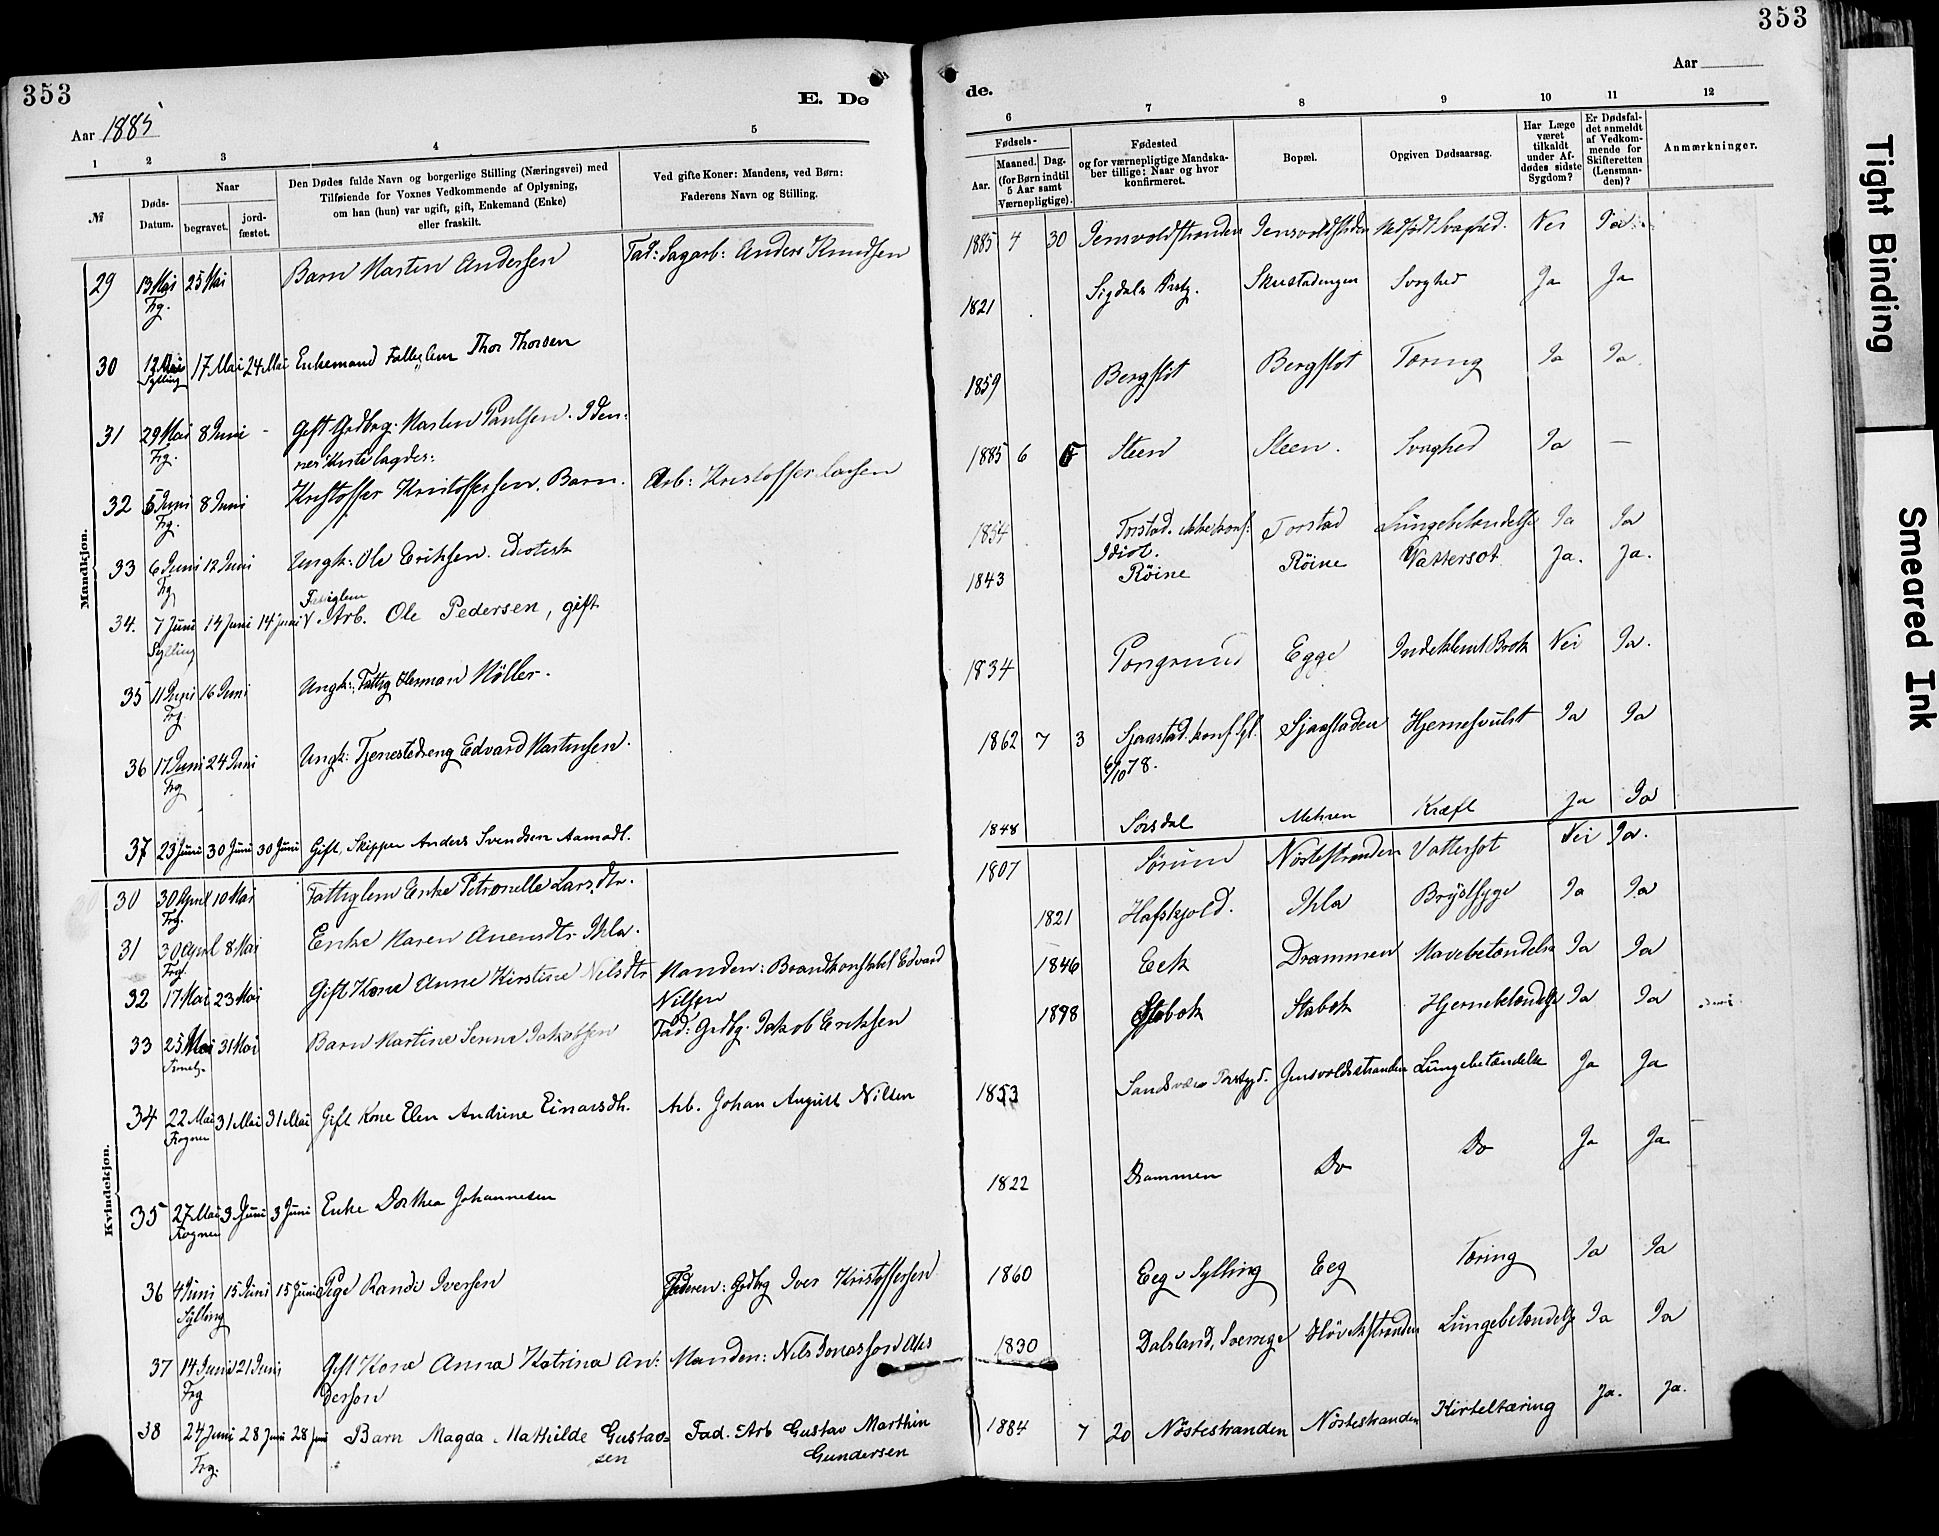 353
Aar 1885
E. Dø
1 2 3 4 5
№
Døds-
Datum.
Naar
begravet.
jord-
fæstet.
Den Dødes fulde Navn og borgerlige Stilling (Næringsvei) med
Tilføiende for Voxnes Vedkommende af Oplysning,
om han (hun) var ugift, gift, Enkemand (Enke)
eller fraskilt.
Ved gifte Koner: Mandens, ved Børn:
Faderens Navn og Stilling.
Mandkjøn.
29 13 Mai 25 Mai Barn Marten Andersen Fad: Sagarb: Anders Knudsen
Frg.
30 12 Mai 17 Mai 24 Mai Enkemand Fattiglem Thor Thorsen
Sylling
31 29 Mai 8 Juni - Gift Gdbrg. Marten Paulsen.
Frg.
32 5 Juni 8 Juni Kristoffer Kristoffersen. Barn. Arb: Kristoffer Larsen
Frg.
33 6 Juni 12 Juni Ungk: Ole Eriksen. Idiotisk
Frg
Fattiglem
34. 7 Juni 14 Juni 14 Juni Arb. Ole Pedersen, gift
Sylling
35 11 Juni 16 Juni Ungk: Fattig Møller.
Frg.
36 17 Juni 24 Juni Ungk: Tjenestedreng Edvard Martinsen.
Frg
37 23 Juni 30 Juni 30 Juni Gift, Skipper Anders Svendsen Aamodt.
Kvindekjøn.
30 30 April 10 Mai Fattiglem Enke Petronelle Larsdtr.
Frg.
31 30 April 8 Mai Enke Maren Ihla.
Frg.
32 17 Mai 23 Mai Gift Kone Anne Kirstine Nilsdtr Manden: Brandkonstabel Edvard
Nilsen
33 25 Mai 31 Mai Barn Martine Jakobsen Fad: Gdbg. Jakob Eriksen
34 22 Mai 31 Mai 31 Mai Gift Kone Elen Andrine Einarsdtr. Arb. Johan August Nilsen
Frogner
35 27 Mai 3 Juni 3 Juni Enke Dorthea Johannesen
Frogner
36 4 Juni 15 Juni 15 Juni Pige Randi Iversen Faderen: Gdbrg Iver Kristoffersen
Sylling
37 14 Juni 21 Juni Gift Kone Anna Katrina An: Manden: Nils Jonasson
Frg dersson
38 24 Juni 28 Juni 28 Juni Barn Magda Mathilde Gustav- Fad. Arb Gustav Marthin
Frg. sen Gundersen
353
Aar
de.
6 7 8 9 10 11 12
Fødsels-
Aar.
Maaned. Dag.
(for Børn indtil
5 Aar samt
Værnepligtige).
Fødested
og for værnepligtige Mandska-
ber tillige: Naar og hvor
konfirmeret.
Bopæl.
Opgiven Dødsaarsag.
Har Læge
været
tilkaldt
under Af-
dødes sidste
Sygdom?
Er Dødsfal-
det anmeldt
af Vedkom-
mende for
Skifteretten
(Lensman-
den)?
Anmærkninger.
1885 4 30 Jensvoldstranden Jensvoldstranden Medfødt Svaghed. Nei Ja
1821 Sigdals Prstg. Skustadengen Svaghed Ja Ja
1859 Bergflot Bergflot Tæring Ja Ja
1885 6 5 Steen Steen. Svaghed Ja —
1854 Torstad. ikke konf: Torstad Lungebetændelse Ja Ja
Idiot.
1843 Röine Röine Vattersot Ja. Ja.
1834 Porsgrund Egge Indeklemt Brok Nei Ja.
1862 7 3 Sjaastad. konf. Syl. Sjaastaden Hjernesvulst Ja Ja
6/10 78.
1848 Sørsdal Mehren Kræft Ja Ja
1807 Sørum Nøstestranden Vattersot Nei Ja.
1821 Hafskjold. Ihla Brystsyge Ja Ja
1846 Eek Drammen Mavebetændelse Ja Ja
Stabæk Stabæk Hjernebetændelse Ja Ja
1853 Sandsvær Prstgjd. Jensvoldsstranden Lungebetændelse Ja Ja
1822 Drammen Do Do Ja Ja
1860 Eeg i Sylling Eeg Tæring Ja Ja
1830 Dalsland, Sverrige Hövikstranden Lungebetændelse Ja Ja
1884 7 20 Nöstestranden Nöstestranden Kirteltæring Ja. Ja.
Tight Binding
Smeared Ink